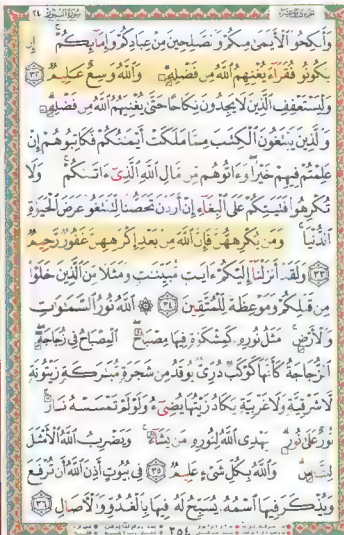 الجزء الثامن عشر سورة النور ٢٤
وَأَنكِحُوا۟ الْأَيَـٰمَىٰ مِنكُمْ وَالصَّـٰلِحِينَ مِنْ عِبَادِكُمْ وَإِمَآئِكُمْ إِن
يَكُونُوا۟ فُقَرَآءَ يُغْنِهِمُ اللَّهُ مِن فَضْلِهِ وَاللَّهُ وَٰسِعٌ عَلِيمٌ ٣٢
وَلْيَسْتَعْفِفِ الَّذِينَ لَا يَجِدُونَ نِكَاحًا حَتَّىٰ يُغْنِيَهُمُ اللَّهُ مِن فَضْلِهِ
وَالَّذِينَ يَبْتَغُونَ الْكِتَـٰبَ مِمَّا مَلَكَتْ أَيْمَـٰنُكُمْ فَكَاتِبُوهُمْ إِنْ
عَلِمْتُمْ فِيهِمْ خَيْرًا وَءَاتُوهُم مِّن مَّالِ اللَّهِ الَّذِىٓ ءَاتَىٰكُمْ وَلَا
تُكْرِهُوا۟ فَتَيَـٰتِكُمْ عَلَى الْبِغَآءِ إِنْ أَرَدْنَ تَحَصُّنًا لِّتَبْتَغُوا۟ عَرَضَ الْحَيَوٰةِ
الدُّنْيَا وَمَن يُكْرِههُّنَّ فَإِنَّ اللَّهَ مِن بَعْدِ إِكْرَٰهِهِنَّ غَفُورٌ رَّحِيمٌ
٣٣ وَلَقَدْ أَنزَلْنَآ إِلَيْكُمْ ءَايَـٰتٍ مُّبَيِّنَـٰتٍ وَمَثَلًا مِّنَ الَّذِينَ خَلَوْا۟
مِن قَبْلِكُمْ وَمَوْعِظَةً لِّلْمُتَّقِينَ ٣٤ ۞ اللَّهُ نُورُ السَّمَـٰوَٰتِ
وَالْأَرْضِ مَثَلُ نُورِهِ كَمِشْكَوٰةٍ فِيهَا مِصْبَاحٌ الْمِصْبَاحُ فِى زُجَاجَةٍ
الزُّجَاجَةُ كَأَنَّهَا كَوْكَبٌ دُرِّىٌّ يُوقَدُ مِن شَجَرَةٍ مُّبَـٰرَكَةٍ زَيْتُونَةٍ
لَّا شَرْقِيَّةٍ وَلَا غَرْبِيَّةٍ يَكَادُ زَيْتُهَا يُضِىٓءُ وَلَوْ لَمْ تَمْسَسْهُ نَارٌ
نُّورٌ عَلَىٰ نُورٍ يَهْدِى اللَّهُ لِنُورِهِ مَن يَشَآءُ وَيَضْرِبُ اللَّهُ الْأَمْثَـٰلَ
لِلنَّاسِ وَاللَّهُ بِكُلِّ شَىْءٍ عَلِيمٌ ٣٥ فِى بُيُوتٍ أَذِنَ اللَّهُ أَن تُرْفَعَ
وَيُذْكَرَ فِيهَا اسْمُهُ يُسَبِّحُ لَهُ فِيهَا بِالْغُدُوِّ وَالْـَٔاصَالِ ٣٦
٣٥٤